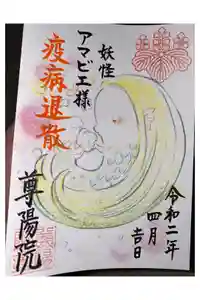 妖怪
アマビエ様
疫病退散
令和二年
四月吉日
尊陽院